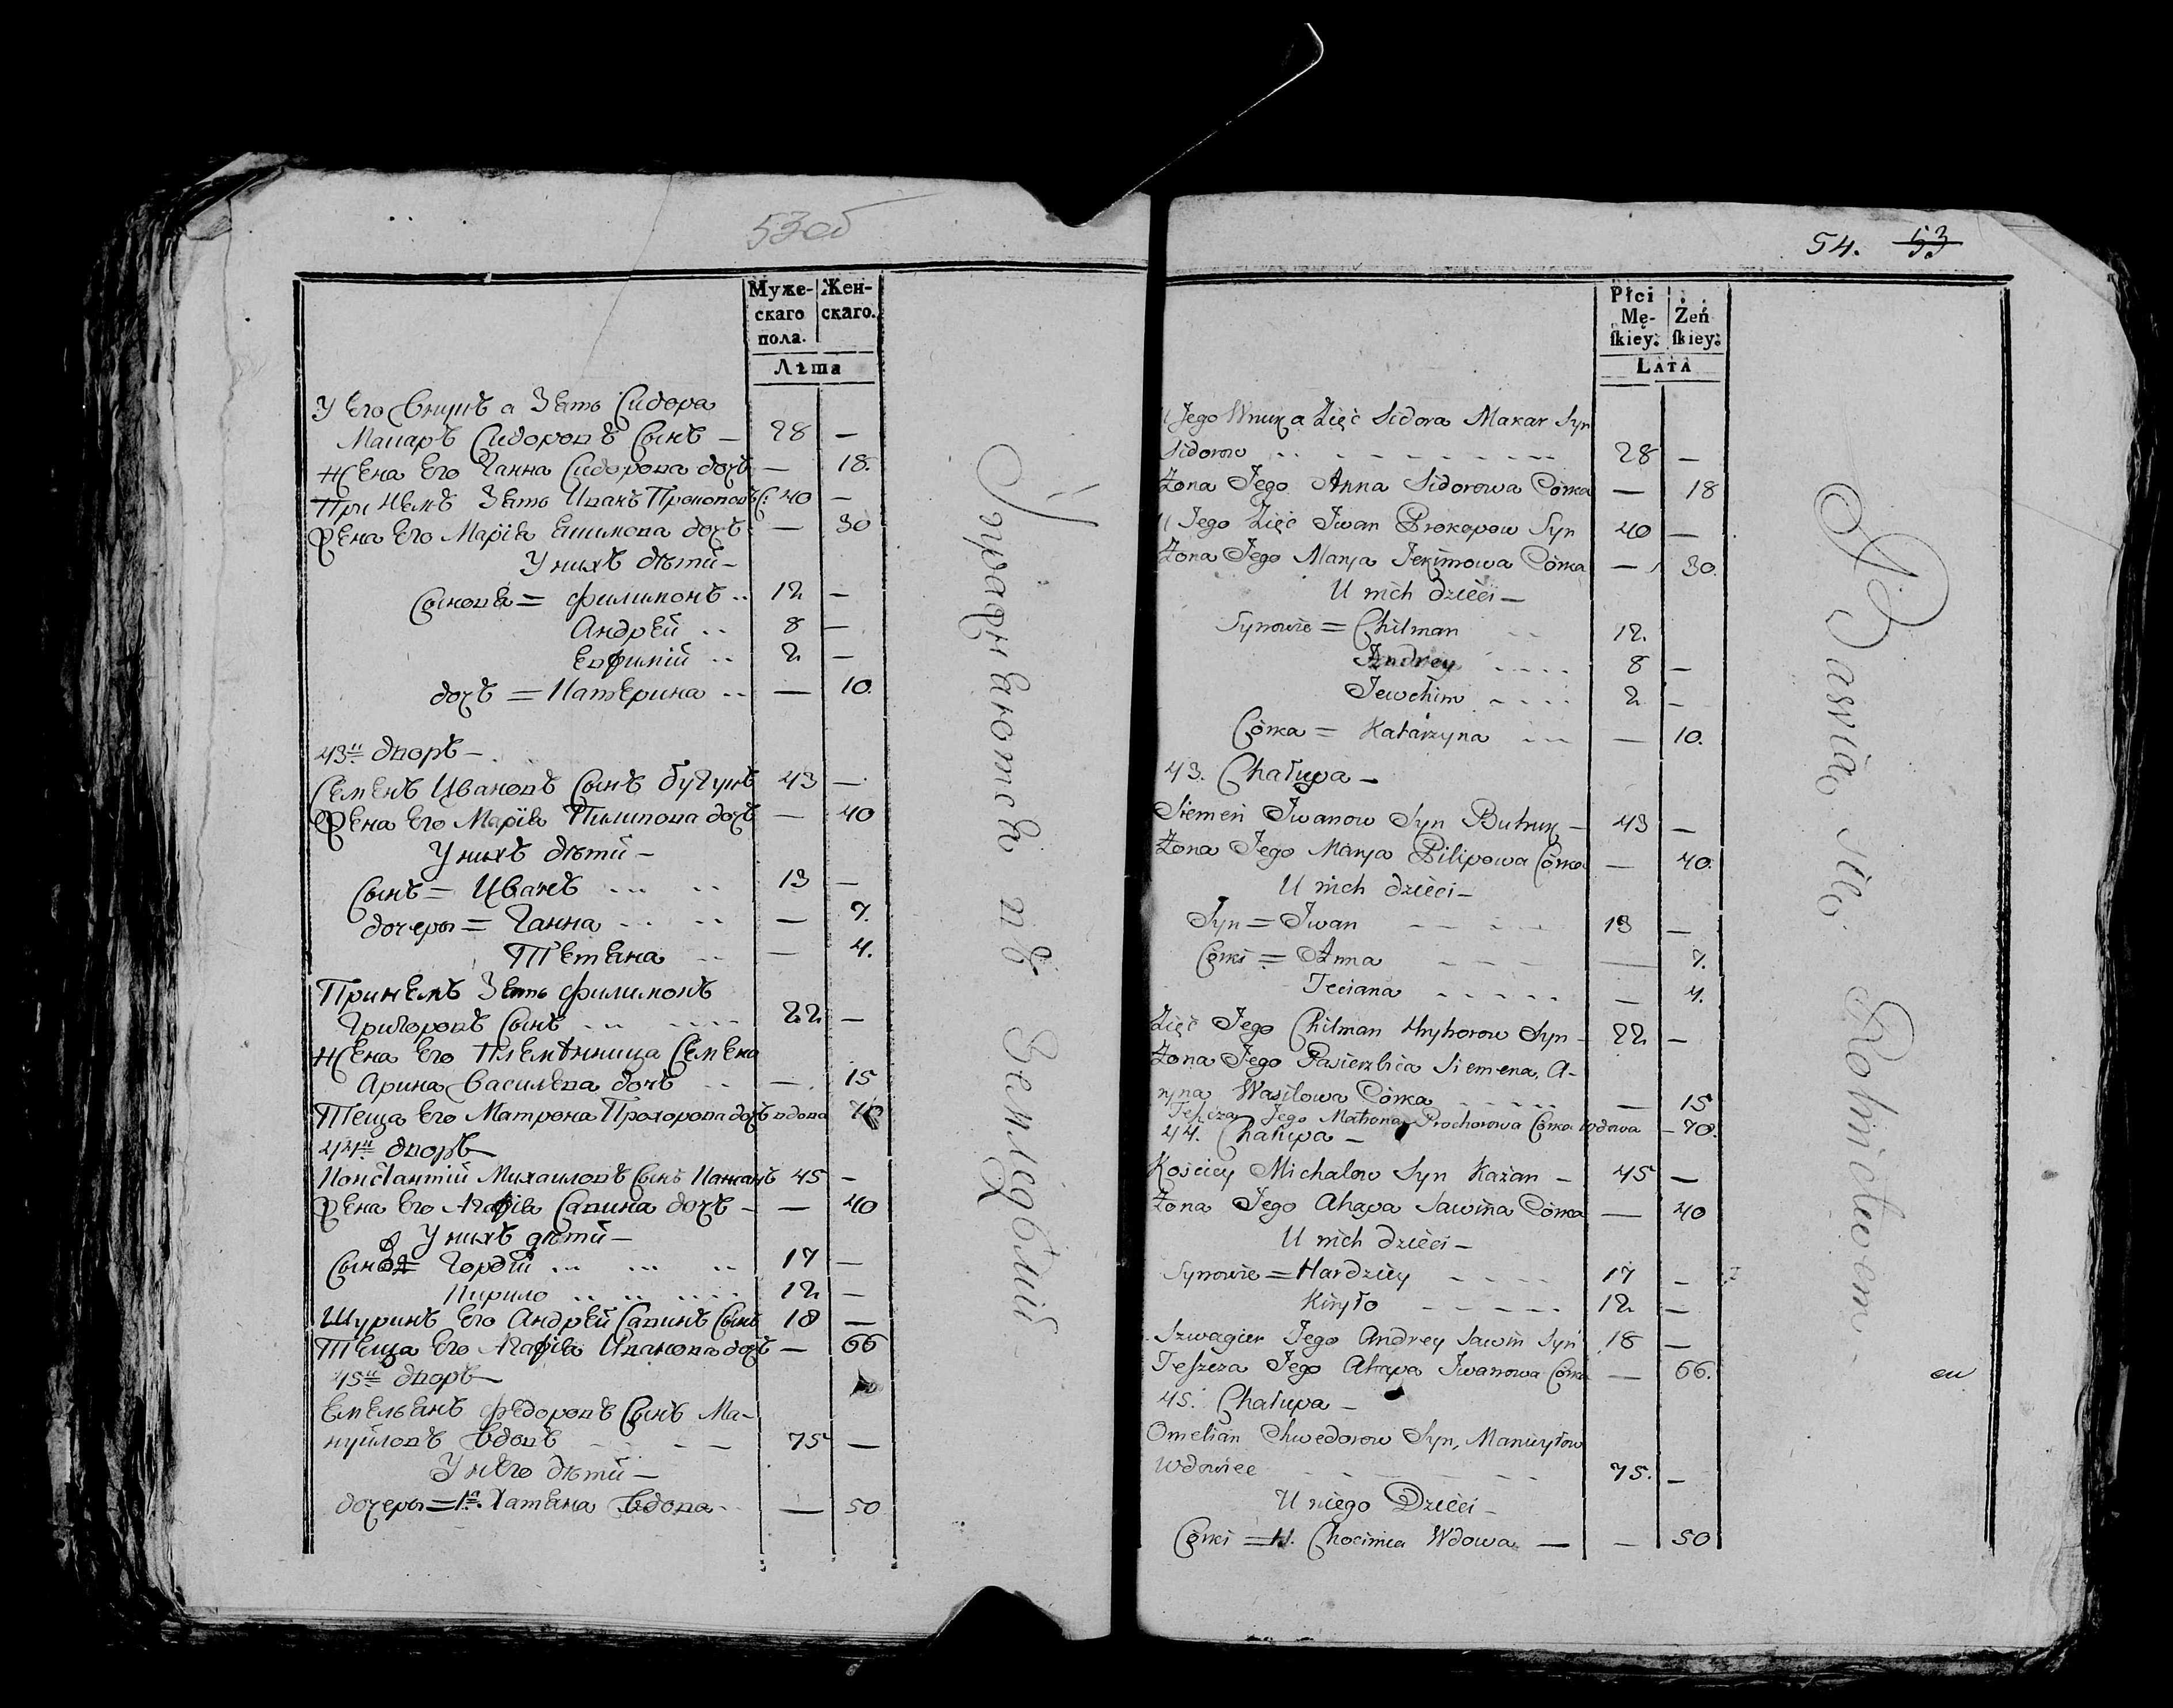 53 об
Муже-
скаго
пола.
Жен-
скаго.
Лѣта
У Его Внукъ а Зять Сидора
Макаръ Сидоровъ Сынъ — 28 —
Жена Его Ганна Сидорова дочь — 18.
При немъ Зять Иванъ Прокоповъ С: 40 —
Жена Его Марія Екимова дочь — 30
У нихъ дѣти —
Сыновя = Филимонъ .. 12 —
Андрей .. 8 —
Евфимій .. 2 —
дочь = Катерина .. — 10.
43й дворъ —
Семенъ Ивановъ Сынъ 43 —
Жена Его Марія Пилипова дочь — 40
У нихъ дѣти —
Сынъ = Иванъ ... .. 13 —
дочеры = Ганна ... .. — 7.
Тетяна .. — 4.
При немъ Зять Филимонъ
Григоровъ Сынъ ... .... 22 —
Жена Его Племѣнница Семена
Арина Василева дочь .. — 15
Теща Его Матрона Прохорова дочь вдова 70
44й дворъ —
Константій Михаиловъ Сынъ Кажанъ 45 —
Жена Его Агафія Савина дочь — — 40
У нихъ дѣти —
Гордій ... ... .. 17 —
Кирило .. .. .... 12 —
Шуринъ Его Андрей Савинъ Сынъ 18 —
Теща Его Агафія Иванова дочь — 66
45й дворъ —
Емельянъ Федоровъ Сынъ Ма-
нуйловъ Вдовъ 75 —
У него дѣти —
дочеры = 1я. Хатяна Вдова .. — 50
Упражняются въ Земледѣлій —
54. 53
Płci
Mę-
skiey:
Żeń
skiey:
LATA
U Jego Wnuk a Zięć Sidora Makar Syn
Sidorow .. - - - - - - - 28 —
Żona Jego Anna Sidorowa Córka — 18
U Jego Zięć Iwan Prokopow Syn 40 —
Żona Jego Marya Jekimowa Córka — 30.
U nich dzieci —
Synowie = Chilman .. 12.
Andrey .... 8 —
Jewchim .... 2 —
Córka = Katarzyna ... — 10.
43. Chałupa —
Siemen Iwanow Syn — 43 —
Żona Jego Marya Pilipowa Córka — 40.
U nich dzieci —
Syn = Iwan - - - - - 13 —
Córki = Anna - - - - — 7.
Teciana - - - - - — 4.
Zięć Jego Chilman Hryhorow Syn — 22 —
Żona Jego Pasierzbica Siemena, A-
ryna Wasilowa Córka - - - - - — 15
Teszcza Jego Matrona Prochorowa Córka Wdowa — 70.
44. Chałupa —
Kościey Michałow Syn Każan — 45 —
Żona Jego Ahapa Sawina Córka — 40
U nich dzieci —
Synowie = Hardziey - - - - 17 —
Kiryło - - - - - 12 —
Szwagier Jego Andrey Sawin Syn 18 —
Teszcza Jego Ahapa Iwanowa Córka — 66.
45. Chałupa —
Omelian Chwedorow Syn, Manuyłow
Wdowiec - - - - - - 75. —
U niego Dzieci —
Wdowa — — 50
Bawią się Rolnictwem —